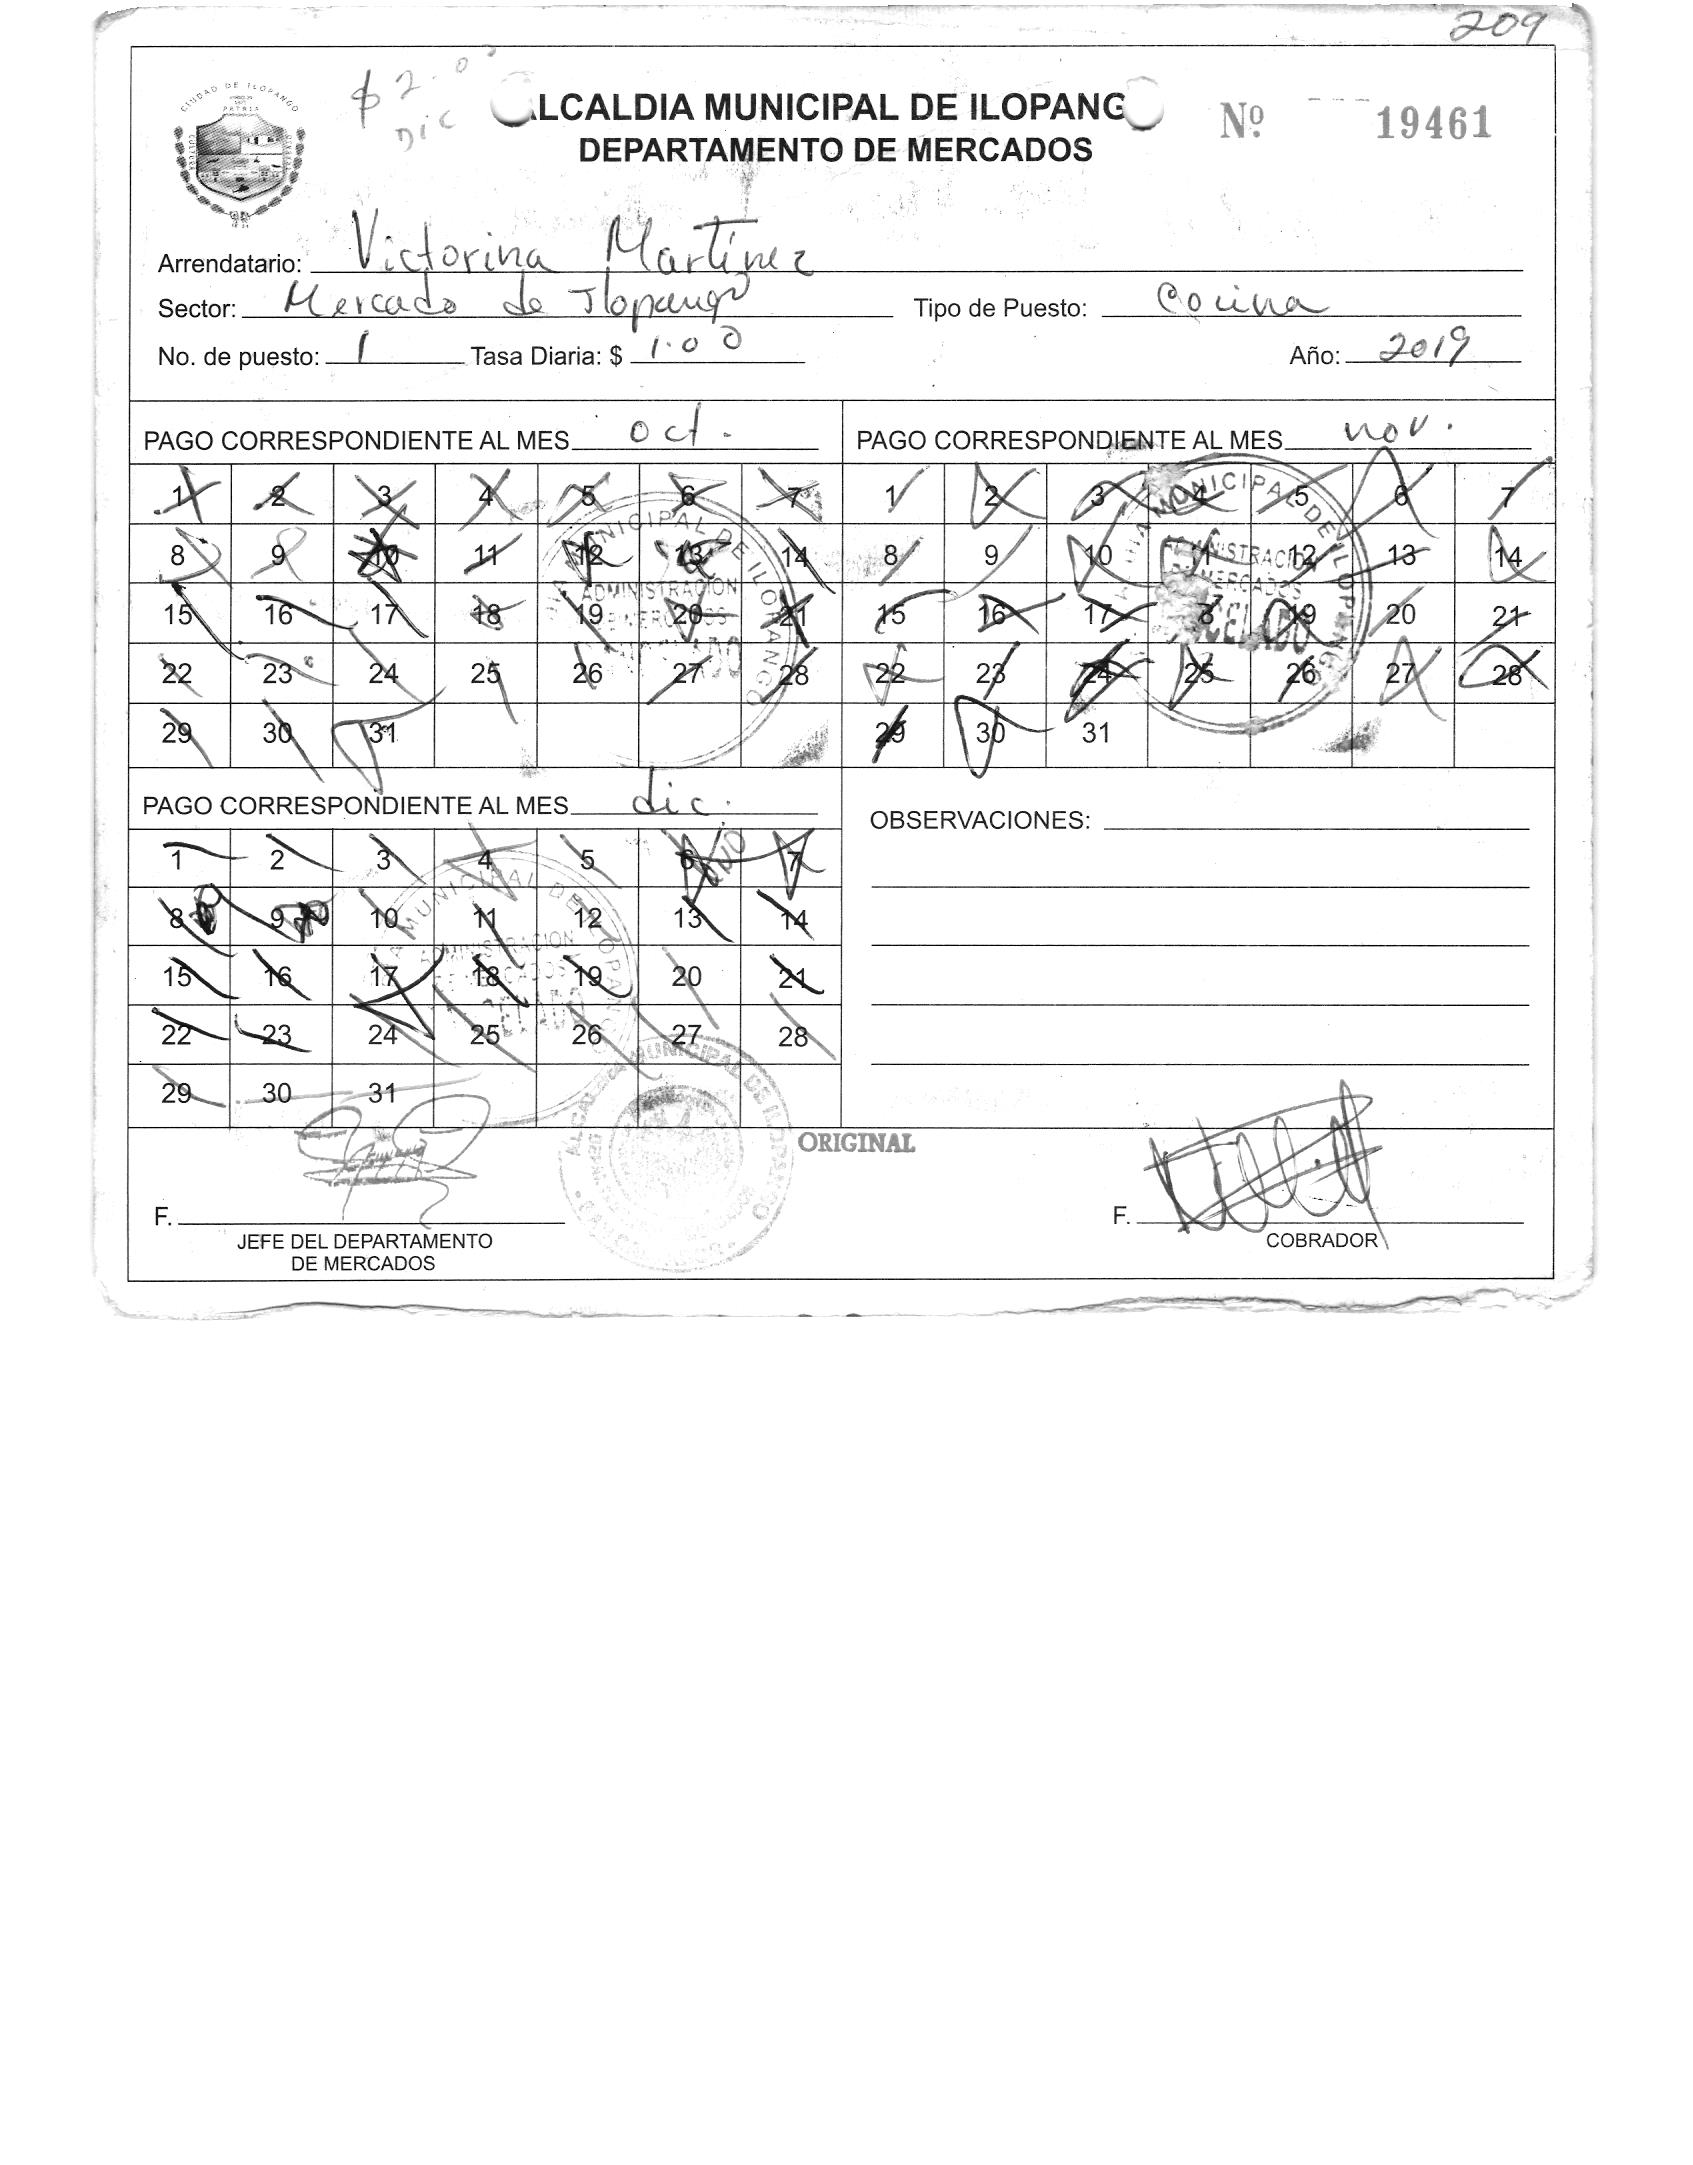 209
$ 2.00
DIC
CIUDAD DE ILOPANGO
PATRIA
CULTURA
LCALDIA MUNICIPAL DE ILOPANG
DEPARTAMENTO DE MERCADOS
Nº 19461
Arrendatario: Victorina Martínez
Sector: Mercado de Ilopango Tipo de Puesto: Cocina
No. de puesto: 1 Tasa Diaria: $ 1.00 Año: 2019
PAGO CORRESPONDIENTE AL MES oct.
1 2 3 4 5 6 7
8 9 10 11 12 13 14
15 16 17 18 19 20 21
22 23 24 25 26 27 28
29 30 31
MUNICIPAL DE ILOPANGO
ADMINISTRACION
DE MERCADOS
PAGO CORRESPONDIENTE AL MES nov.
1 2 3 4 5 6 7
8 9 10 11 12 13 14
15 16 17 18 19 20 21
22 23 24 25 26 27 28
29 30 31
MUNICIPAL DE ILOPANGO
ADMINISTRACION
DE MERCADOS
CELADO
PAGO CORRESPONDIENTE AL MES dic.
1 2 3 4 5 6 7
8 9 10 11 12 13 14
15 16 17 18 19 20 21
22 23 24 25 26 27 28
29 30 31
MUNICIPAL DE ILOPANGO
ADMINISTRACION
DE MERCADOS
CELADO
OBSERVACIONES:
ALCALDIA MUNICIPAL DE ILOPANGO
ORIGINAL
F.
JEFE DEL DEPARTAMENTO
DE MERCADOS
F.
COBRADOR